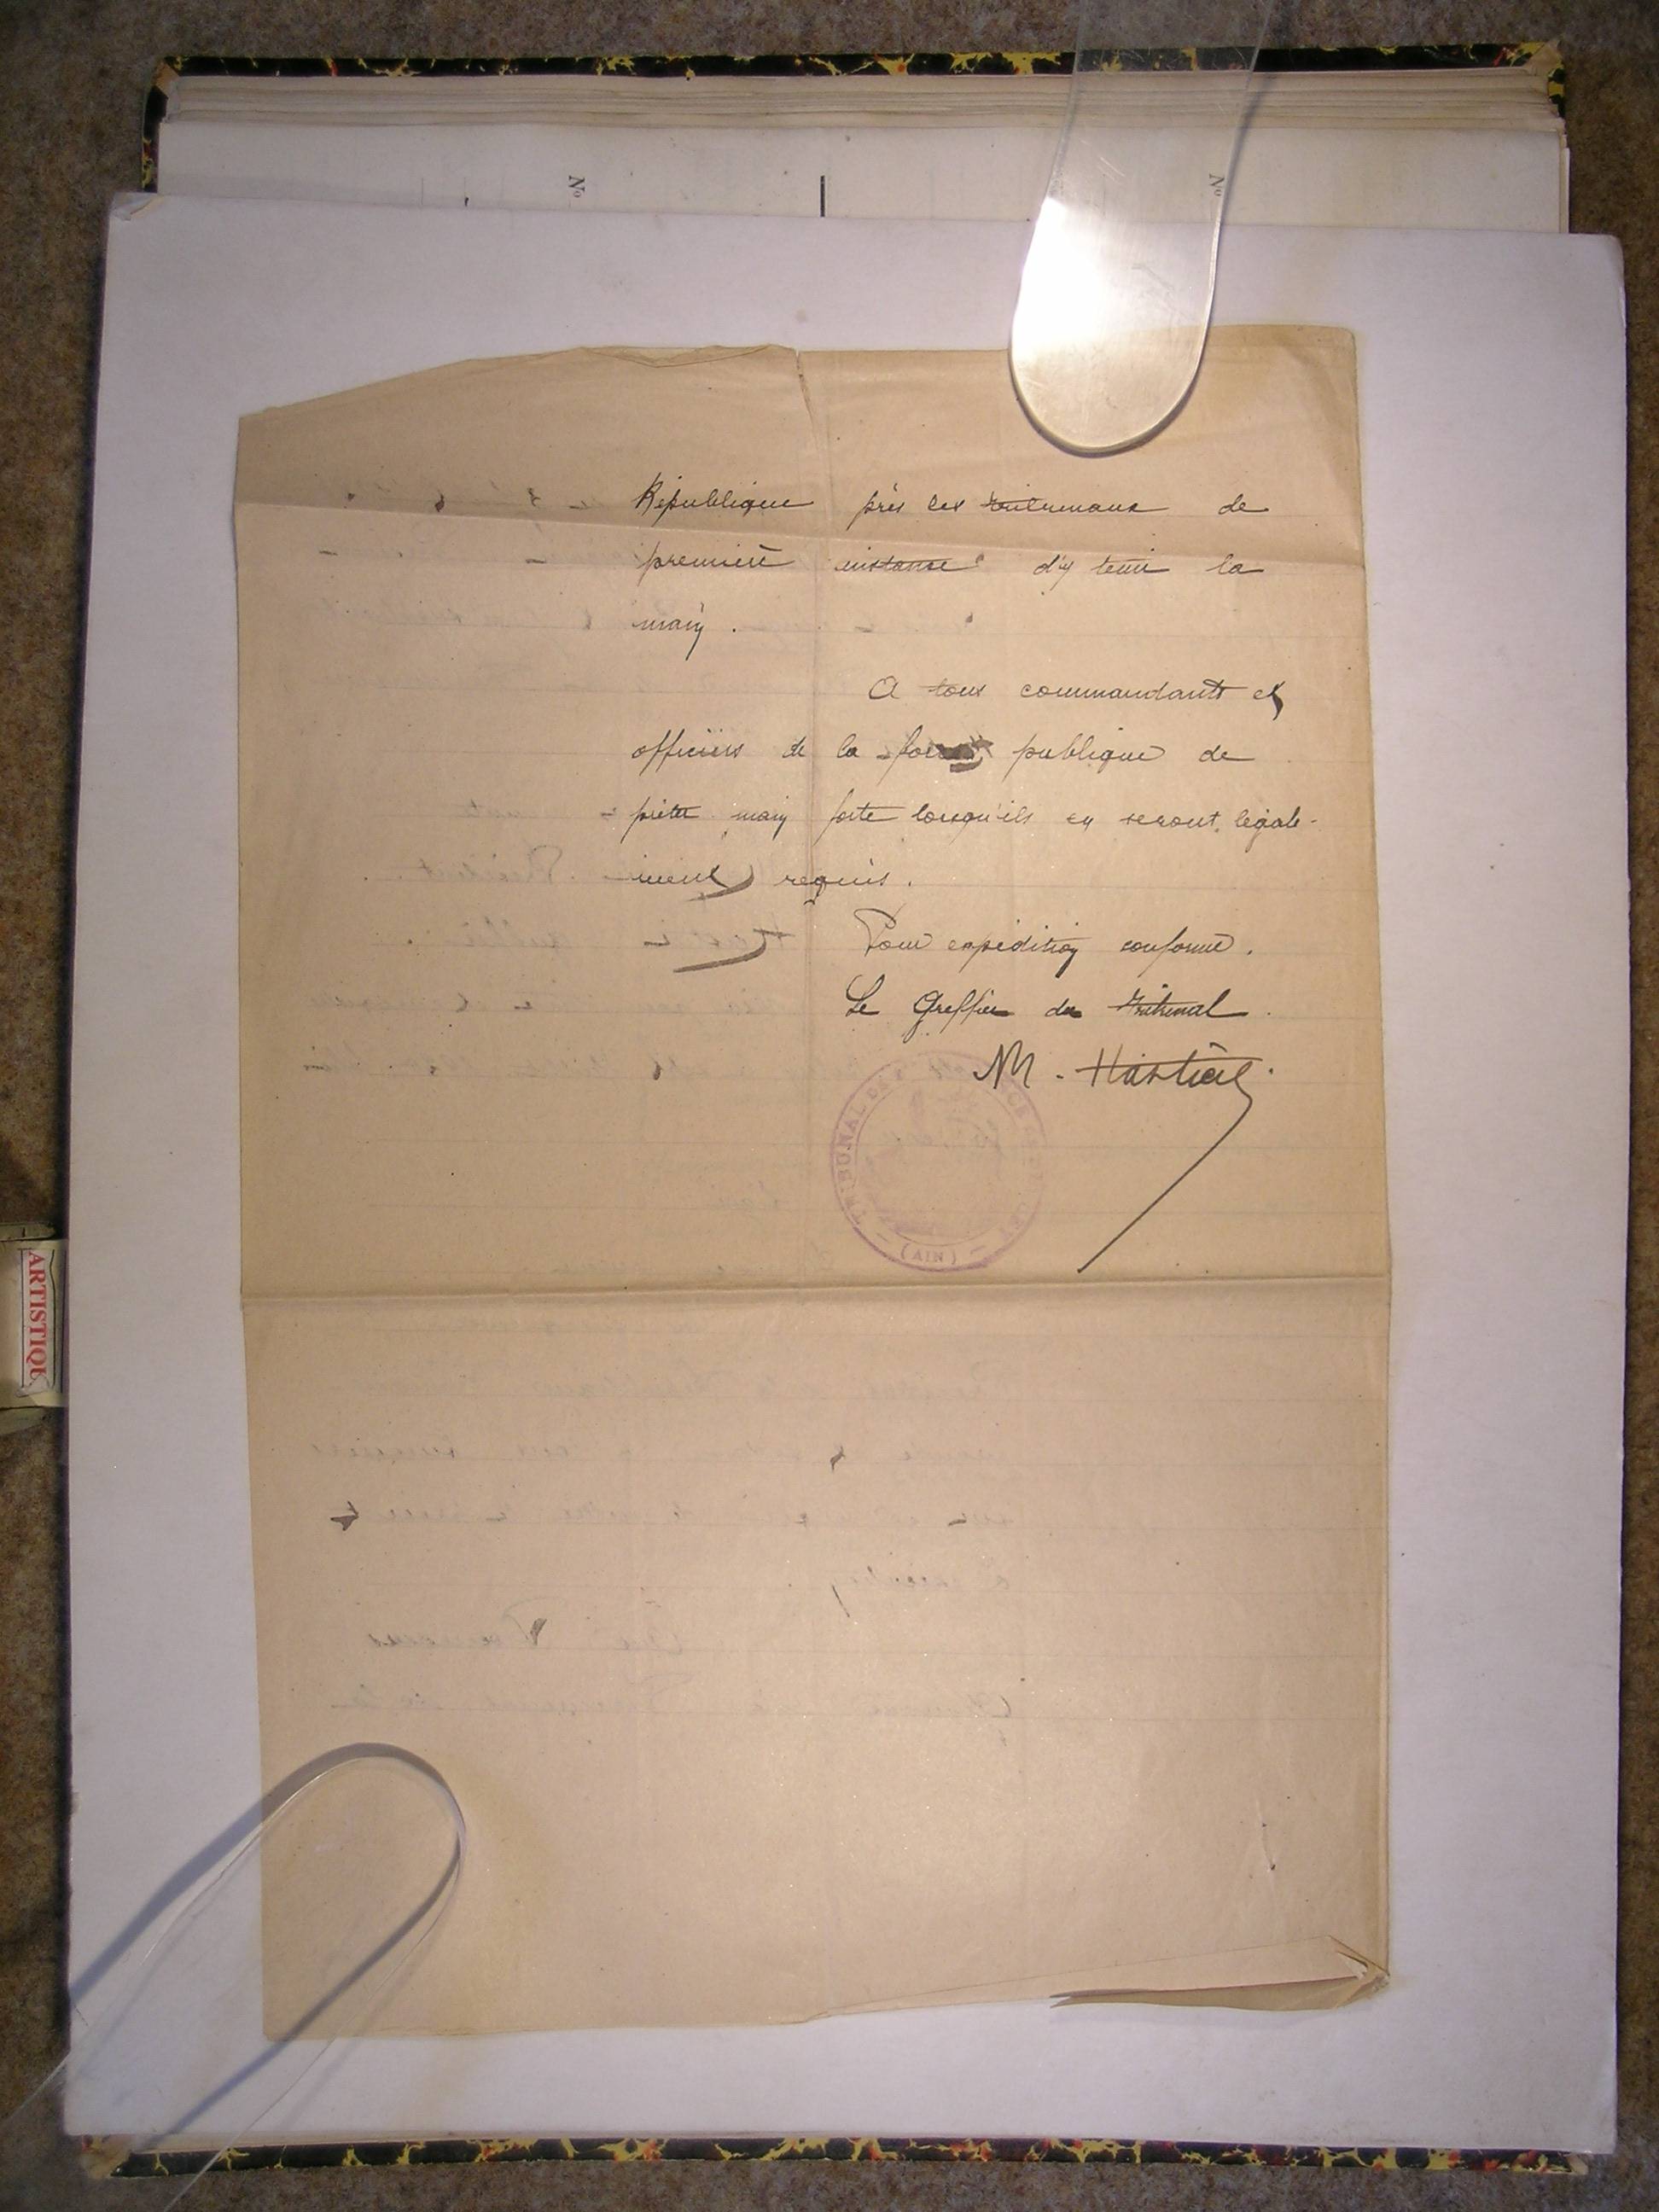 N° N°
République près les tribunaux de
première instance d'y tenir la
main.
A tous commandants et
officiers de la force publique de
prêter main forte lorsqu'ils en seront légale-
ment requis.
Pour expédition conforme.
Le Greffier du Tribunal.
M.
TRIBUNAL DE
(AIN)
ARTISTIQU